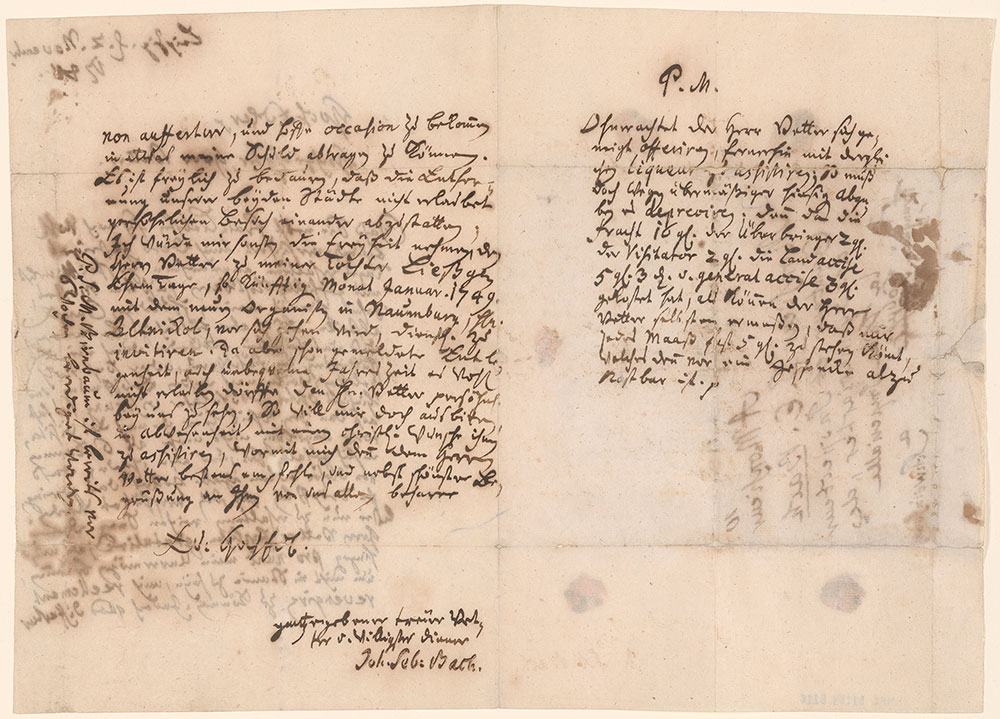 non auffertur, und hoffe occasion zu bekommen
in etwas meine Schuld abtragen zu können.
Es ist freylich zu bedauren, daß die Entfer-
nung unserer beyden Städte nicht erlaubet
persöhnlichen Besuch einander abzustatten;
Ich würde mir sonst die Freyheit nehmen, den
Herrn Vetter zu meiner Tochter Ließgen
Ehren Tage, so künfftig Monat Januar. 1749.
mit dem neuen Organisten in Naumburg, Hr.
Altnickol, vor sich gehen wird, dienstl. zu
invitiren. Da aber schon gemeldete Entle-
genheit, auch unbeqveme Jahres Zeit es wohl
nicht erlauben dörffte den Hn. Vetter persöhnl.
bey uns zu sehen; So will mir doch ausbitten,
in Abwesenheit mit einem christl. Wunsche ihnen
zu assistiren, wormit mich denn dem Herrn
Vetter bestens empfehle, und nebst schönster Be-
grüßung an Ihm von uns allen beharre
Eu: HochEdl.
gantz ergebener treüer Vet-
ter u. willigster Diener
Joh. Seb: Bach.
P.S. M. Birnbaum ist bereits vor
6 Wochen beerdiget worden.
P. M.
Ohnerachtet der Herr Vetter sich ge-
neigt offeriren, fernerhin mit derglei-
chen liqueur zu assistiren; So muß
doch wegen übermäßiger hiesigen Abga-
ben es depreciren; denn da die
Fracht 16 gl. der Überbringer 2 gl.
der Visitator 2 gl. die Landaccise
5 gl. 3 d. u. general accise 3 gl.
gekostet hat, als können der Herr
Vetter selbsten ermeßen, daß mir
jedes Maaß fast 5 gl. zu stehen kömt,
welches denn vor ein Geschencke alzu
kostbar ist.